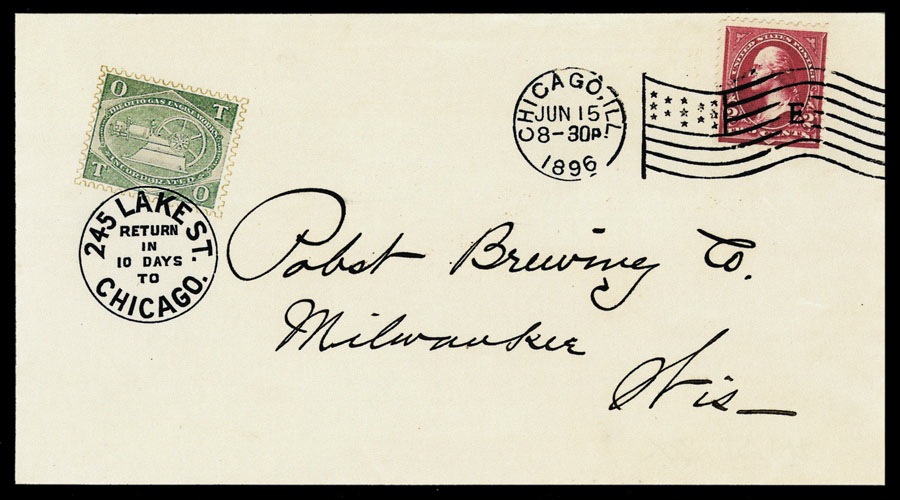 O T
THE OTTO GAS ENGINE WORKS
INCORPORATED
T O
245 LAKE ST.
RETURN
IN
10 DAYS
TO
CHICAGO.
CHICAGO, ILL.
JUN 15
8-30P
1896
UNITED STATES POSTAGE
2 2
TWO CENTS
E
Pabst Brewing Co.
Milwaukee
Wis